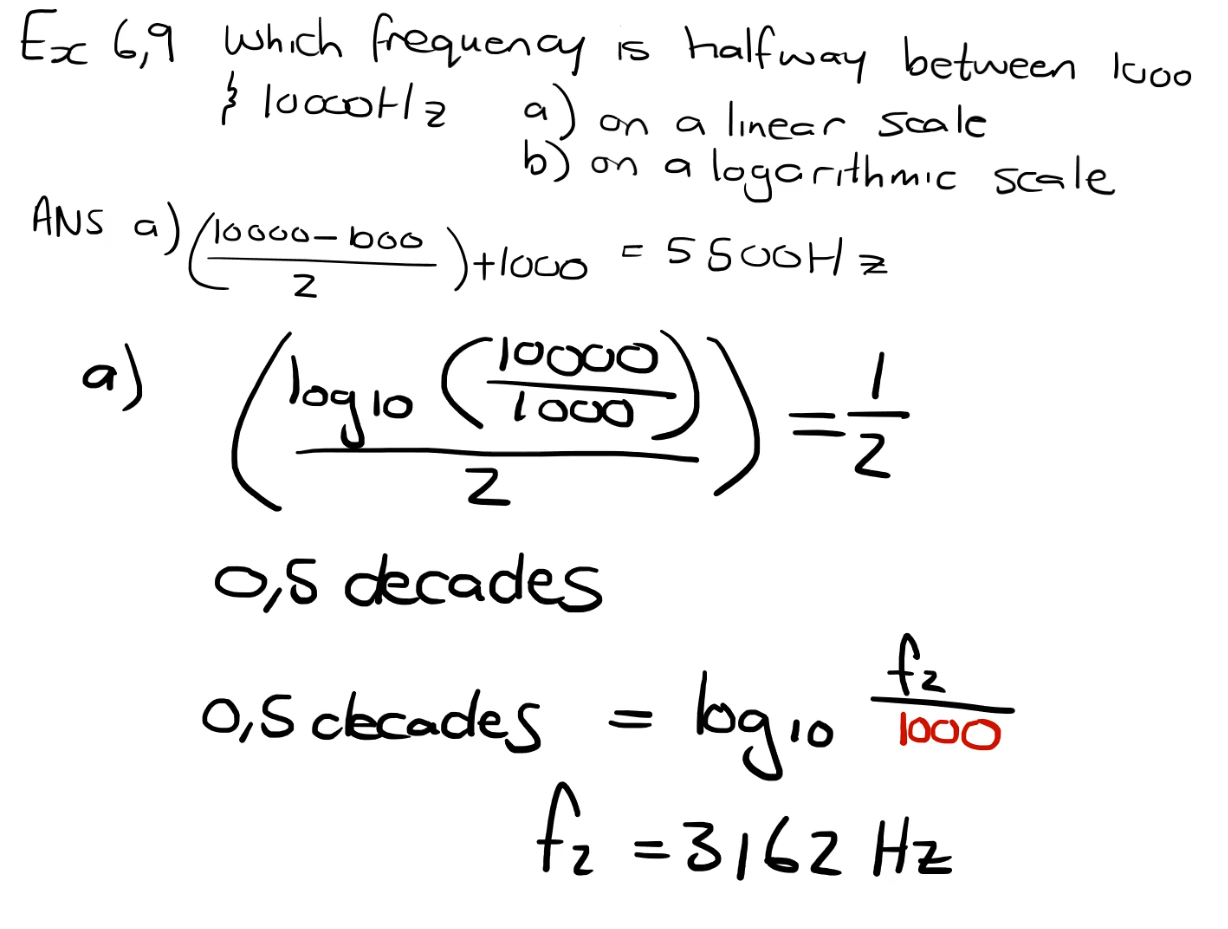 Ex 6,9 which frequency is halfway between 1000
& 10000Hz a) on a linear scale
b) on a logarithmic scale
ANS a) (10000-1000 / 2) + 1000 = 5500Hz
a) (log10 (10000 / 1000) / 2) = 1/2
0,5 decades
0,5 decades = log10 f2 / 1000
f2 = 3162 Hz